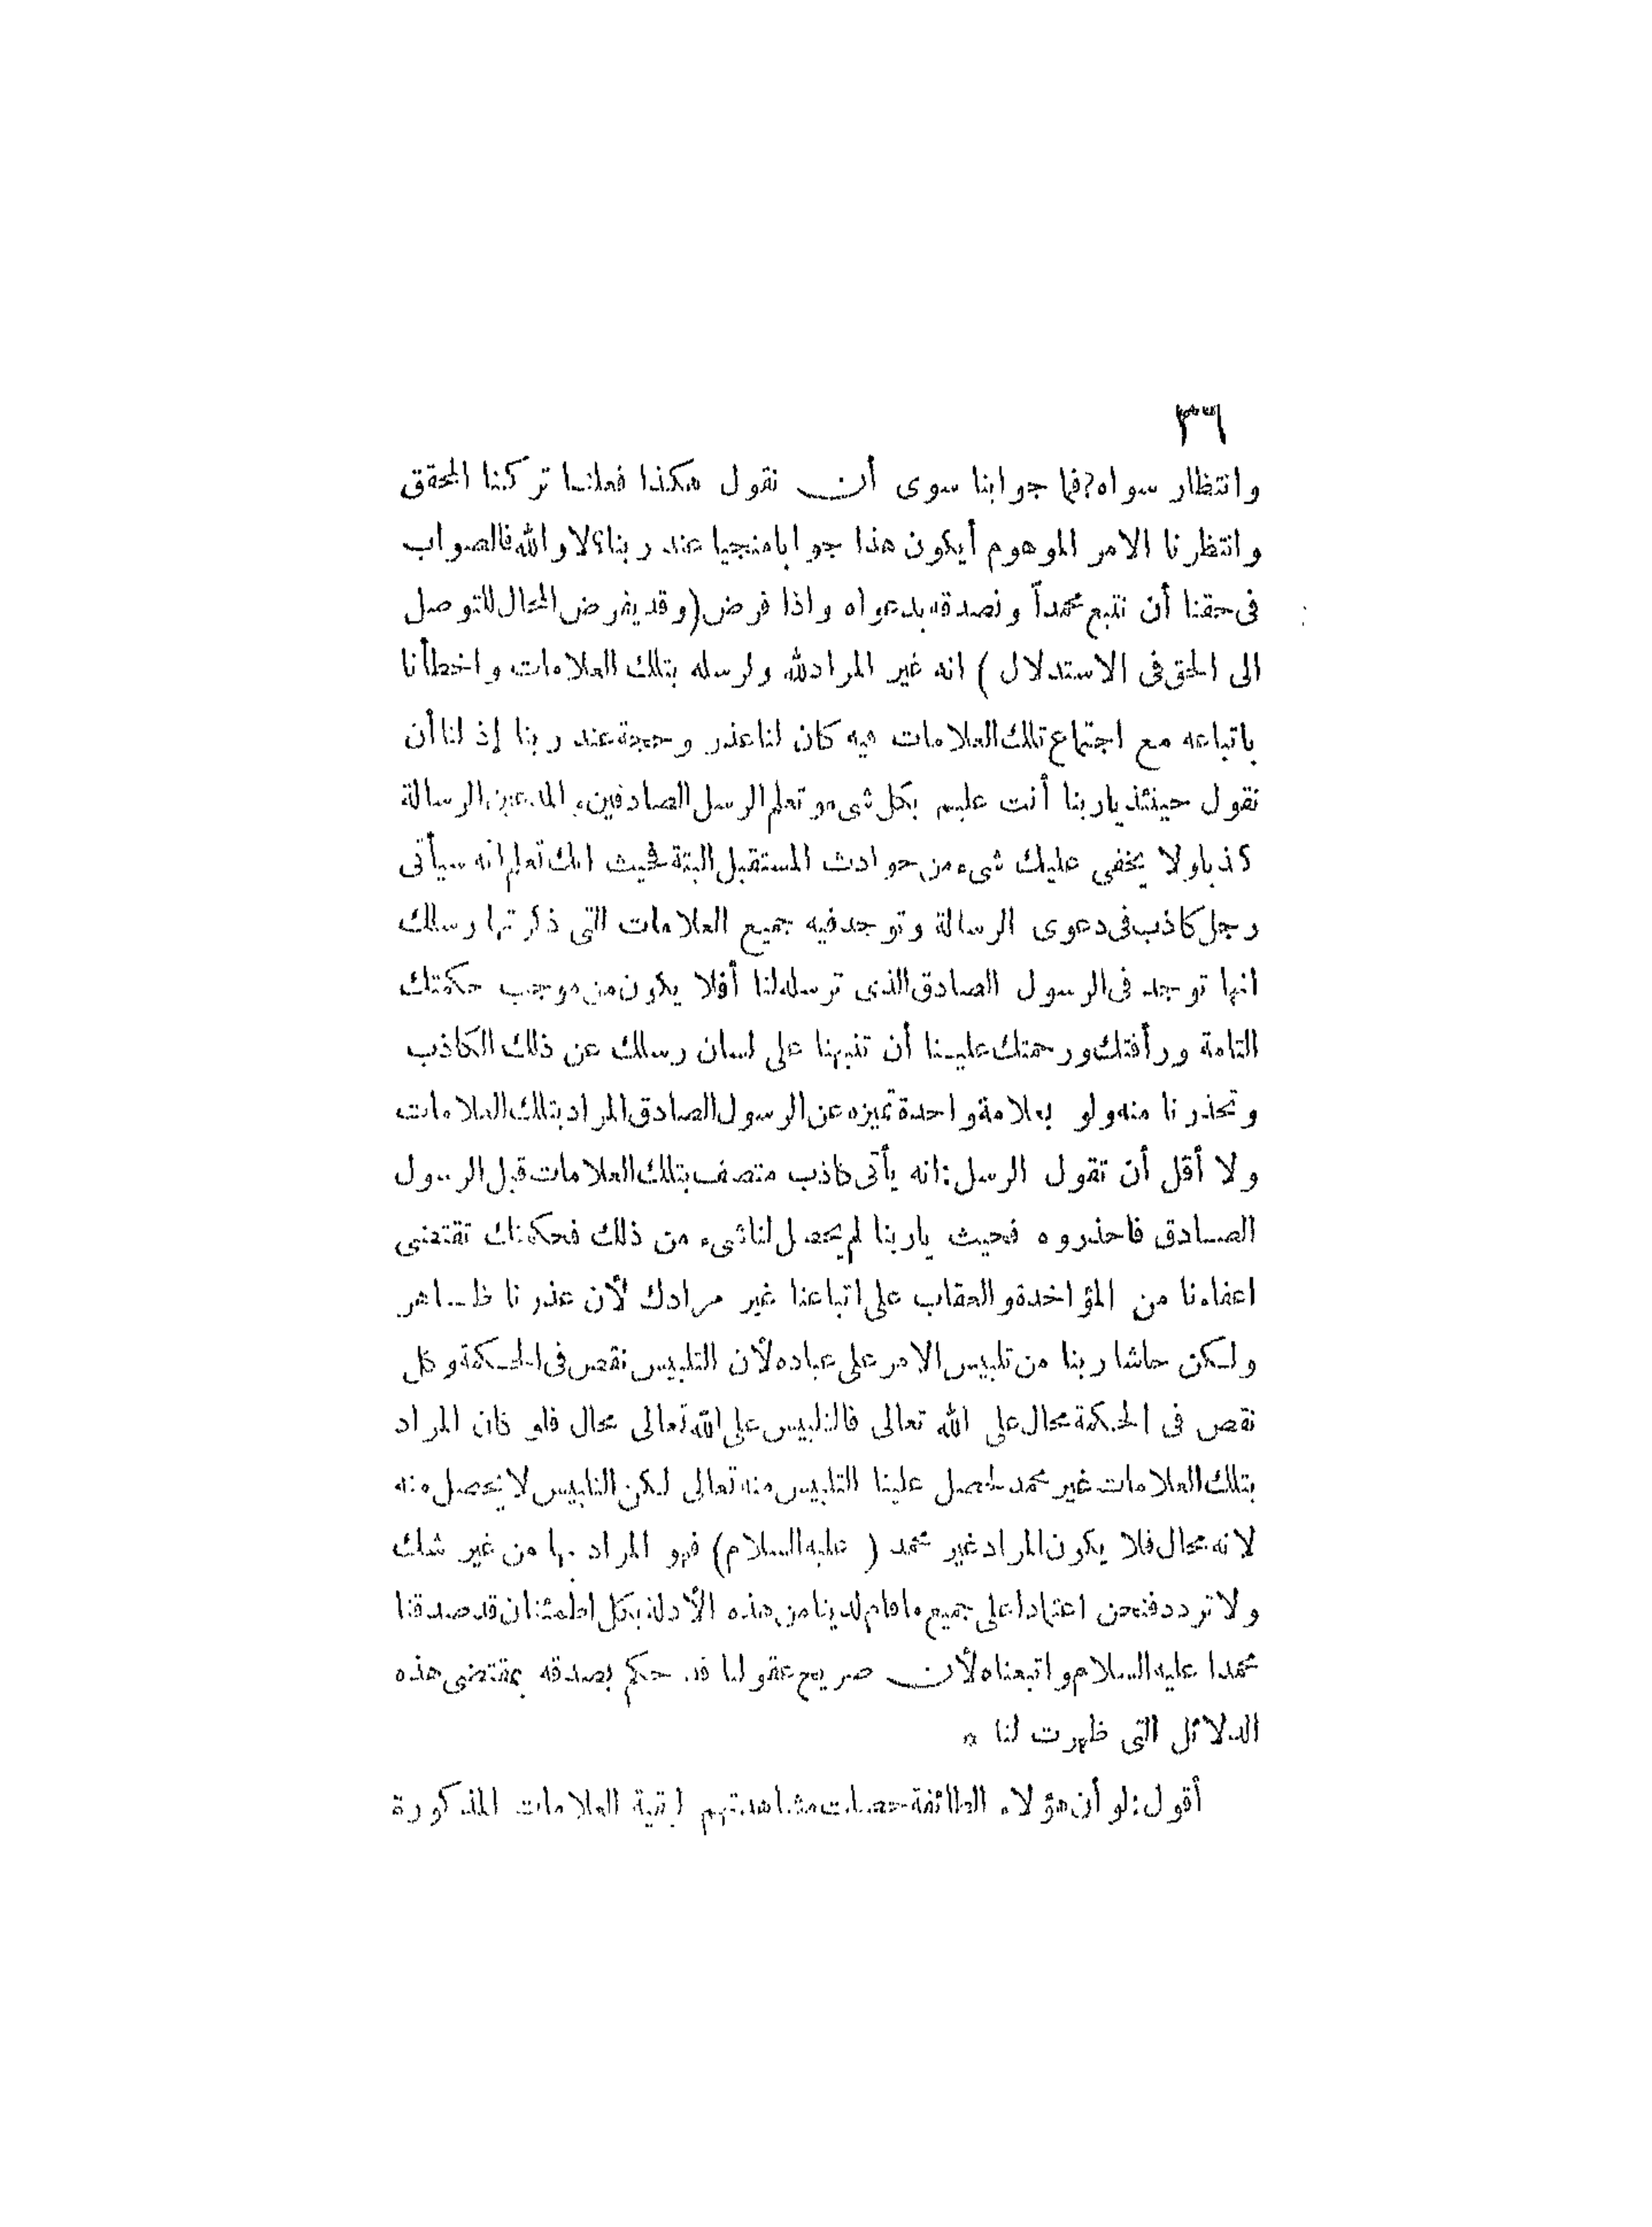 ٣٦
وانتظار سواه؟فما جوابنا سوى أن نقول هكذا فعلنا تركنا المحقق
وانتظرنا الامر الموهوم أيكون هذا جوابا منجيا عند ربنا؟لا والله فالصواب
فى حقنا أن نتبع محمداً ونصدقه بدعواه واذا فرض(وقد يفرض المحال للتوصل
الى الحق فى الاستدلال ) انه غير المراد لله ولرسله بتلك العلامات واخطأنا
باتباعه مع اجتماع تلك العلامات فيه كان لنا عذر وحجة عند ربنا إذ لنا أن
نقول حينئذ يا ربنا أنت عليم بكل شىء وتعلم الرسل الصادقين، المدعين الرسالة
كذبا ولا يخفى عليك شىء من حوادث المستقبل البتة فحيث انك تعلم انه سيأتى
رجل كاذب فى دعوى الرسالة وتوجد فيه جميع العلامات التى ذكرتها رسلك
انها توجد فى الرسول الصادق الذى ترسله لنا أفلا يكون من موجب حكمتك
التامة ورأفتك ورحمتك علينا أن تنبهنا على لسان رسلك عن ذلك الكاذب
وتحذرنا منه ولو بعلامة واحدة تميزه عن الرسول الصادق المراد بتلك العلامات
ولا أقل أن تقول الرسل:انه يأتى كاذب متصف بتلك العلامات قبل الرسول
الصادق فاحذروه فحيث يا ربنا لم يحصل لنا شىء من ذلك فحكمتك تقتضى
اعفاءنا من المؤاخذة والعقاب على اتباعنا غير مرادك لأن عذرنا ظاهر
ولكن حاشا ربنا من تلبيس الامر على عباده لأن التلبيس نقص فى الحكمة وكل
نقص فى الحكمة محال على الله تعالى فالتلبيس على الله تعالى محال فلو كان المراد
بتلك العلامات غير محمد لحصل علينا التلبيس منه تعالى لكن التلبيس لا يحصل منه
لانه محال فلا يكون المراد غير محمد ( عليه السلام) فهو المراد بها من غير شك
ولا تردد فنحن اعتمادا على جميع ما قام لدينا من هذه الأدلة بكل اطمئنان قد صدقنا
محمدا عليه السلام واتبعناه لأن صريح عقولنا قد حكم بصدقه بمقتضى هذه
الدلائل التى ظهرت لنا *
أقول:لو أن هؤلاء الطائفة حصلت مشاهدتهم لبقية العلامات المذكورة